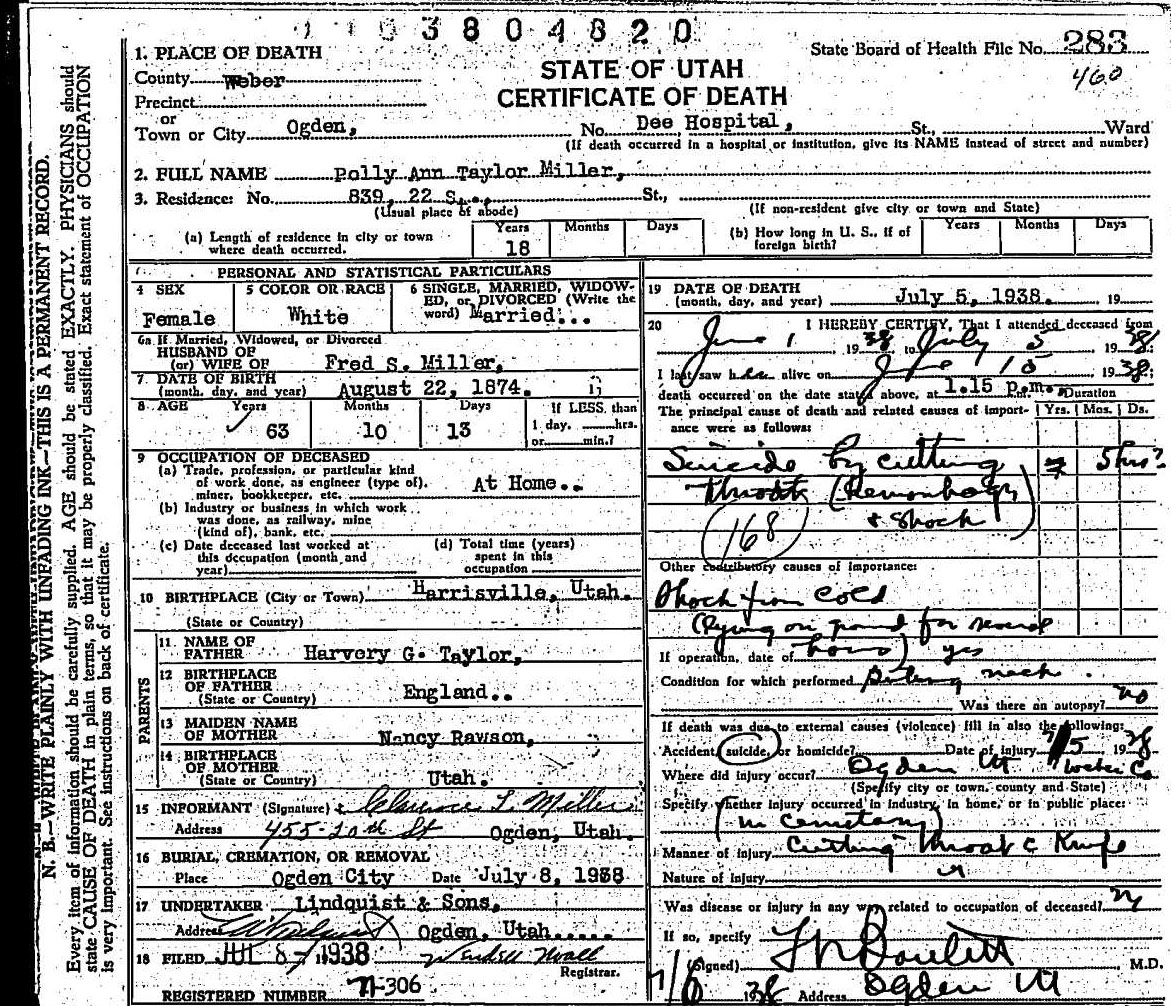 1 1 0 3 8 0 4 8 2 0
State Board of Health File No. 283
460
1. PLACE OF DEATH
County Weber
Precinct
or
Town or City Ogden,
STATE OF UTAH
CERTIFICATE OF DEATH
No. Dee Hospital, St., Ward
(If death occurred in a hospital or institution, give its NAME instead of street and number)
2. FULL NAME Polly Ann Taylor Miller,
3. Residence: No. 839, 22 S., St.,
(Usual place of abode)
(If non-resident give city or town and State)
(a) Length of residence in city or town where death occurred.
Years Months Days
18
(b) How long in U. S., if of foreign birth?
Years Months Days
PERSONAL AND STATISTICAL PARTICULARS
4 SEX
Female
5 COLOR OR RACE
White
6 SINGLE, MARRIED, WIDOW-
ED, or DIVORCED (Write the
word) Married...
6a If Married, Widowed, or Divorced
HUSBAND OF
(or) WIFE OF Fred S. Miller,
7 DATE OF BIRTH
(month, day, and year) August 22, 1874.
8 AGE Years Months Days
63 10 13
If LESS than
1 day, hrs.
or min.?
9 OCCUPATION OF DECEASED
(a) Trade, profession, or particular kind
of work done, as engineer (type of),
miner, bookkeeper, etc. At Home..
(b) Industry or business in which work
was done, as railway, mine
(kind of), bank, etc.
(c) Date deceased last worked at
this occupation (month and
year)
(d) Total time (years)
spent in this
occupation
10 BIRTHPLACE (City or Town) Harrisville, Utah.
(State or Country)
PARENTS
11 NAME OF
FATHER Harvery G. Taylor,
12 BIRTHPLACE
OF FATHER England..
(State or Country)
13 MAIDEN NAME
OF MOTHER Nancy Rawson,
14 BIRTHPLACE
OF MOTHER
(State or Country) Utah.
15 INFORMANT (Signature) Clarence L. Miller
Address 455-20th St Ogden, Utah.
16 BURIAL, CREMATION, OR REMOVAL
Place Ogden City Date July 8, 1938
17 UNDERTAKER Lindquist & Sons,
Address Ogden, Utah
18 FILED JUL 8 1938 Wendell Wall
Registrar.
REGISTERED NUMBER 71-306
19 DATE OF DEATH
(month, day, and year) July 5, 1938. 19
20 I HEREBY CERTIFY, That I attended deceased from
June 1 1938 to July 5 1938
I last saw her alive on June 15 1938;
death occurred on the date stated above, at 1.15 p.m.
Duration
The principal cause of death and related causes of import-
ance were as follows:
Yrs. Mos. Ds.
Suicide by cutting 5 hrs?
throat (Hemorrhage
& Shock)
168
Other contributory causes of importance:
Shock from cold
(lying on ground for several
hours)
If operation, date of yes
Condition for which performed neck
Was there an autopsy? no
If death was due to external causes (violence) fill in also the following:
Accident, suicide, or homicide? Date of injury 7/5 1938
Where did injury occur? Ogden Ut Weber Co
(Specify city or town, county and State)
Specify whether injury occurred in industry, in home, or in public place:
(in cemetary)
Manner of injury Cutting throat c Knife
Nature of injury "
Was disease or injury in any way related to occupation of deceased? n
If so, specify
(Signed) M.D.
7/6 1938 Address Ogden Ut
N. B.—WRITE PLAINLY WITH UNFADING INK—THIS IS A PERMANENT RECORD.
Every item of information should be carefully supplied. AGE should be stated EXACTLY. PHYSICIANS should
state CAUSE OF DEATH in plain terms, so that it may be properly classified. Exact statement of OCCUPATION
is very important. See instructions on back of certificate.